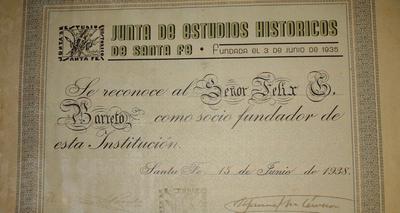 JUNTA DE ESTUDIOS HISTORICOS
DE SANTA FE • FUNDADA EL 3 DE JUNIO DE 1935
JUNTA DE
ESTUDIOS
HISTORICOS
SANTA FE
Se reconoce al Señor Felix G.
Barreto como socio fundador de
esta Institución.
Santa Fe 15 de Junio de 1938.